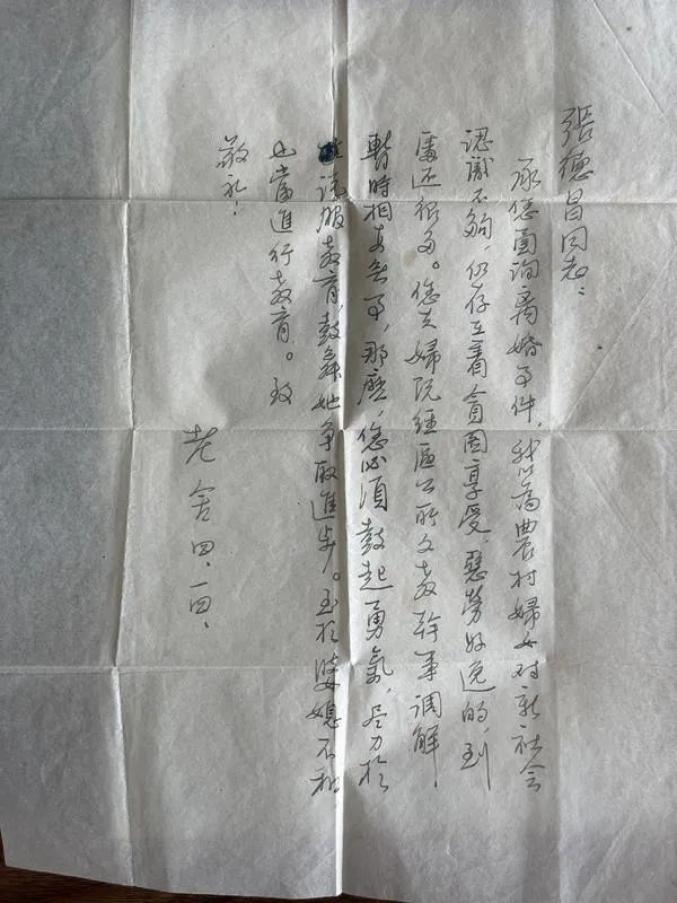 張德昌同志：
承您面詢离婚事件，我以為農村婦女对新社会
認識不夠，仍存在着貪图享受、惡勞好逸的，到
處还很多。您夫婦既經區公所文教幹事調解，
暫時相安無事，那麽，您必須鼓起勇氣，尽力於
說服教育，鼓舞她争取進步。至於婆媳不和
也當進行教育。致
敬礼！
老舍 四、一四、